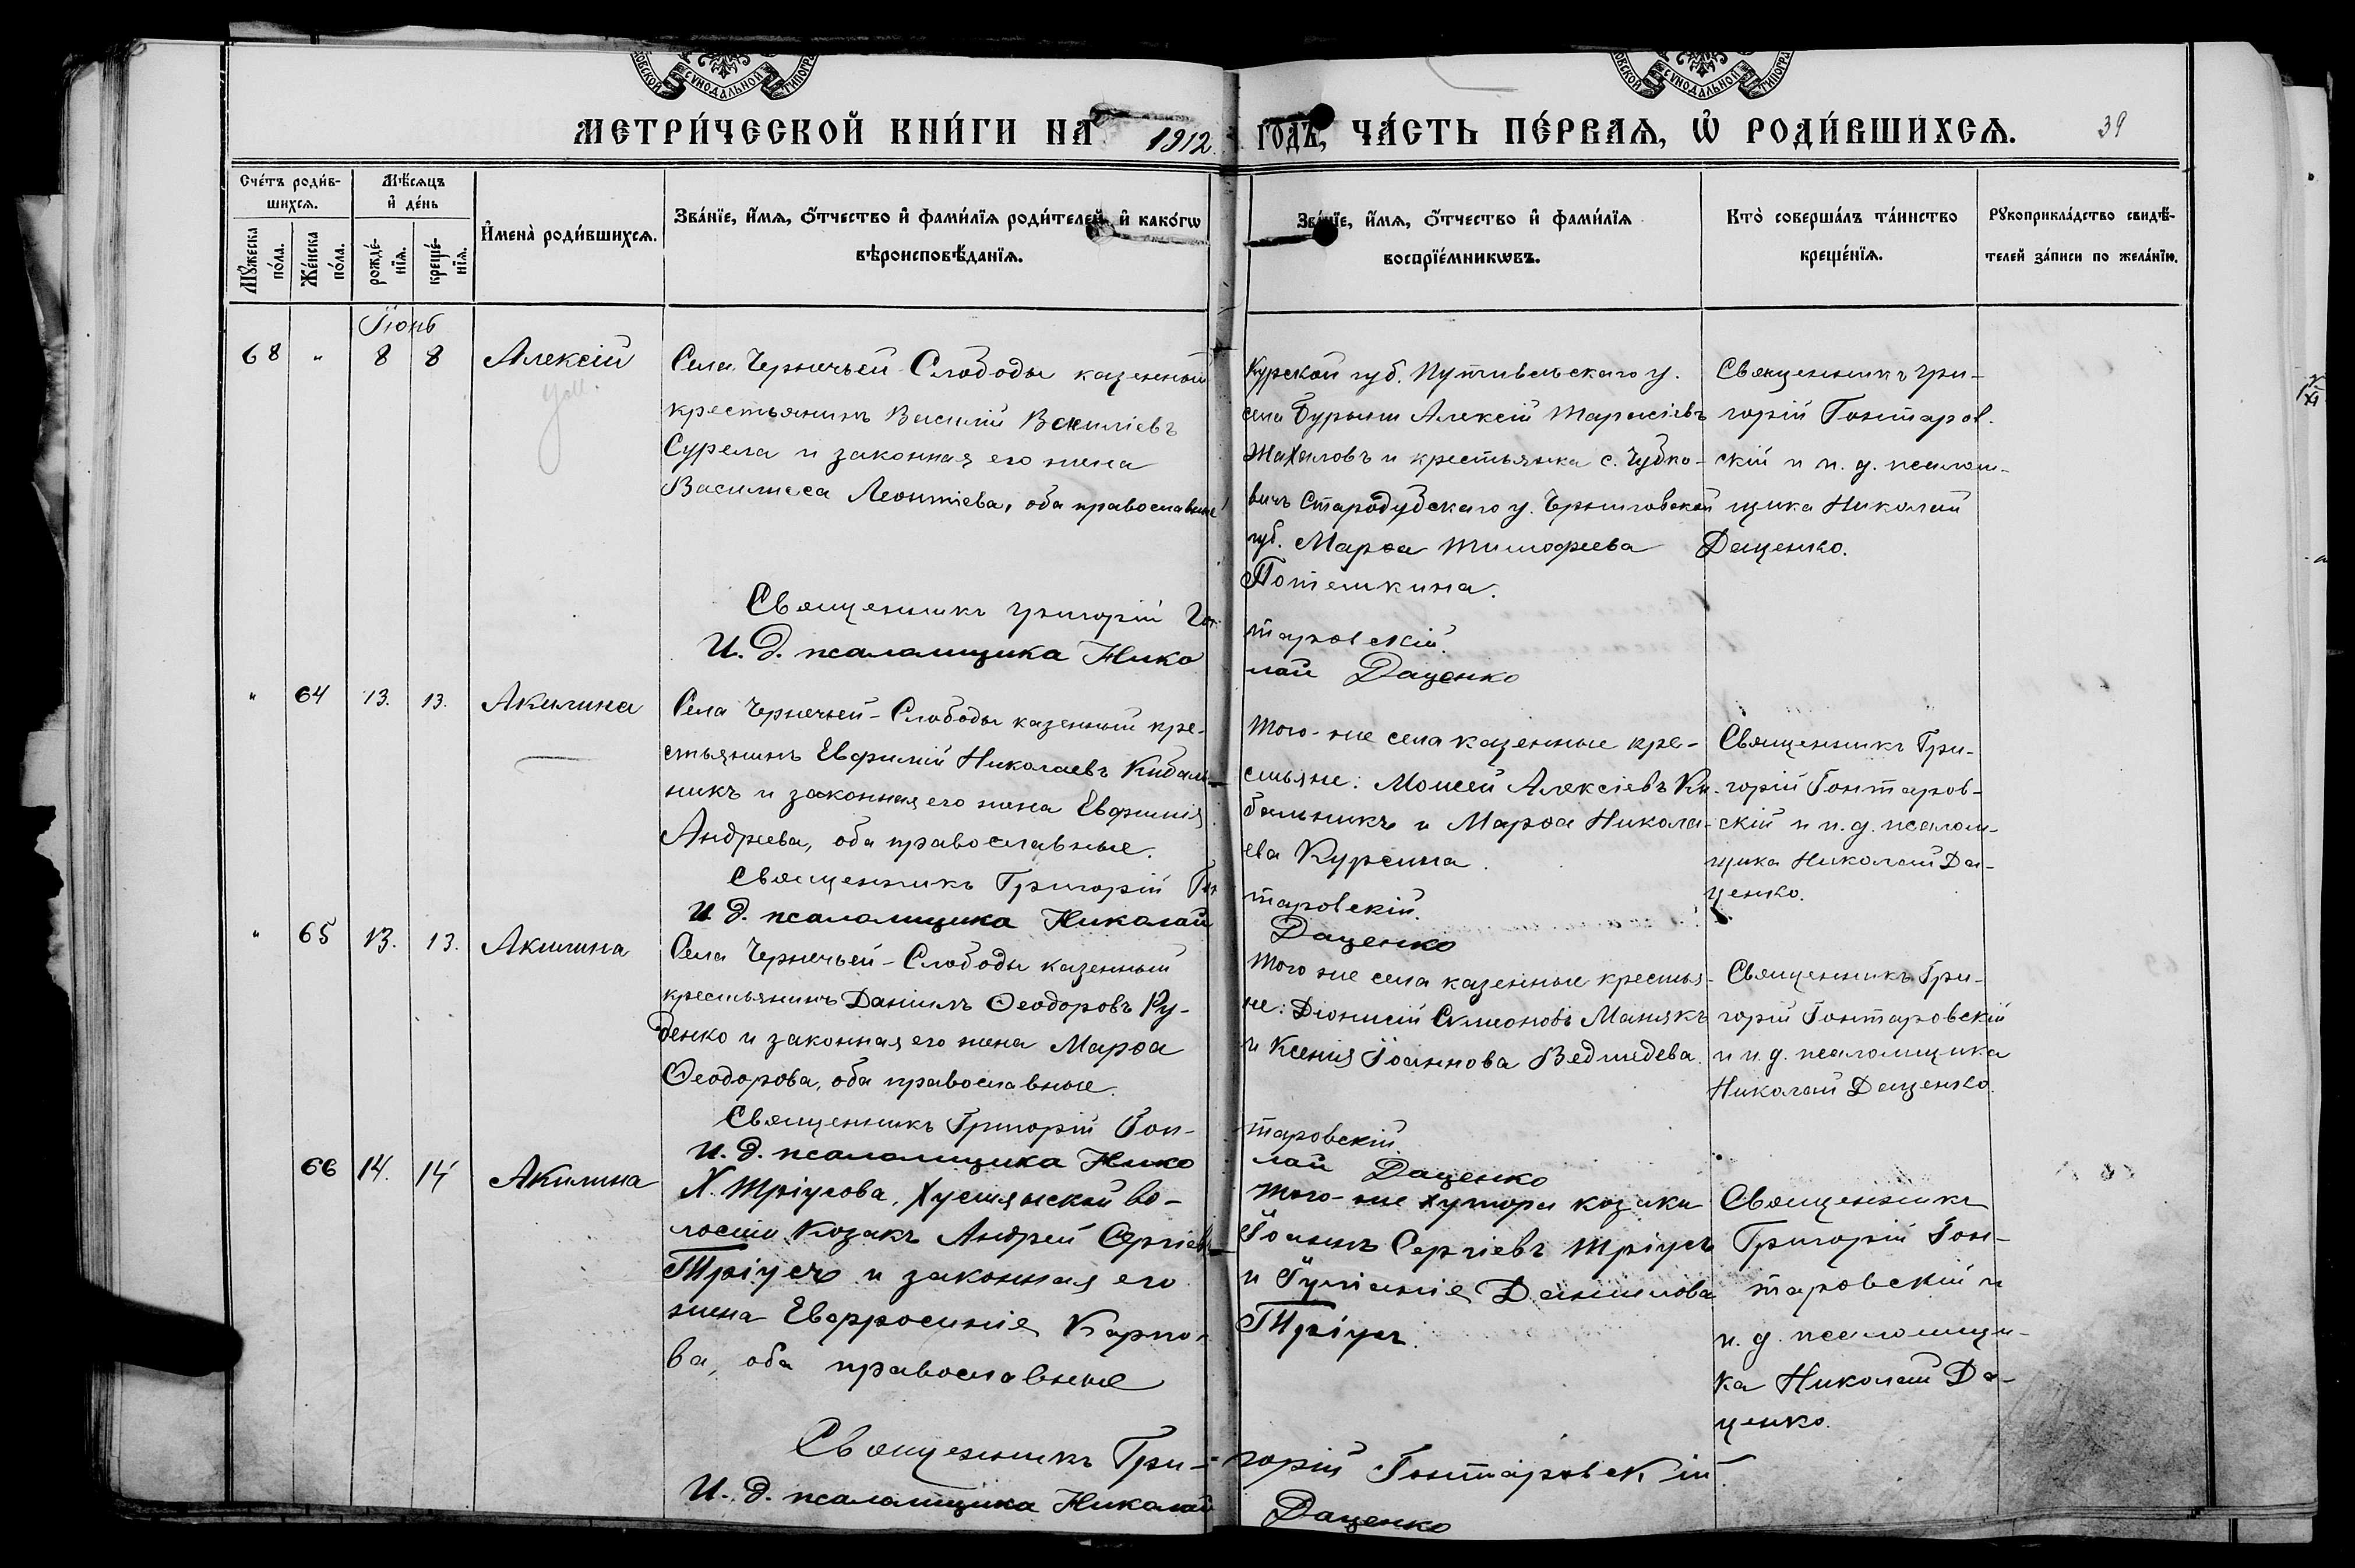 МЕТРИ́ЧЕСКОЙ КНИ́ГИ НА 1912 ГОДЪ, ЧА́СТЬ ПЕ́РВАЯ, Ѡ҆ РОДИ́ВШИХСЯ.
39
Сче́тъ роди́в-
шихся.
Мѣсяцъ
и҆ де́нь
И҆мена̀ роди́вшихся.
Зва́нїе, и҆́мя, ѻ҆́тчество и҆ фами́лїя роди́телей, и҆ како́гѡ
вѣроисповѣ́данїя.
Зва́нїе, и҆́мя, ѻ҆́тчество и҆ фами́лїя
воспрїе́мникѡвъ.
Кто̀ соверша́лъ та́инство
креще́нїя.
Рꙋкоприкла́дство свидѣ́-
телей за́писи по жела́нїю.
Мꙋ́жеска
по́ла.
Же́нска
по́ла.
рожде́-
нїя.
креще́-
нїя.
Іюнь
68 " 8 8 Алексій
Села Чернечьей-Слободы казенный
крестьянинъ Василій Василіевъ
Сурела и законная его жена
Василиса Леонтіева, оба православные
Курской губ. Путивльскаго у.
села Бурыни Алексій Тарасіевъ
и крестьянка с. Чубко-
вичъ Стародубскаго у. Черниговской
губ. Марѳа Тимофеева
Потемкина.
Священникъ Гри-
горій Гонтаров-
скій и и. д. псалом-
щика Николай
Даценко.
Священникъ Григорій Гон-
таровскій.
И. д. псаломщика Нико
лай Даценко
" 64 13. 13. Акилина
Села Чернечьей-Слободы казенный кре-
стьянинъ Евфимій Николаевъ Кибаль-
никъ и законная его жена Евфимія
Андреева, оба православные.
Того-же села казенные кре-
стьяне: Моисей Алексіевъ Ки-
бальникъ и Марѳа Никола-
ева Курсина.
Священникъ Гри-
горій Гонтаров-
скій и и. д. псалом-
щика Николай Да-
ценко.
Священникъ Григорій Гон
таровскій.
И. д. псаломщика Николай
Даценко
" 65 13. 13. Акилина
Села Чернечьей-Слободы казенный
крестьянинъ Даніилъ Ѳеодоровъ Ру-
денко и законная его жена Марѳа
Ѳеодорова, оба православные.
Того же села казенные крестья-
не: Діонисій Симеоновъ Манякъ
и Ксенія Іоаннова Ведмедева.
Священникъ Гри-
горій Гонтаровскій
и и. д. псаломщика
Николай Даценко.
Священникъ Григорій Гон-
таровскій
И. д. псаломщика Нико
лай Даценко
66 14. 14 Акилина
Х. Тріусова, Хустянской во-
лости Козакъ Андрей Сергіевъ
Тріусъ и законная его
жена Евфросинія Карпо-
ва, оба православные
Того-же хутора козаки
Іоаннъ Сергіевъ Тріусъ
и Іуліанія Даніилова
Тріусъ.
Священникъ
Григорій Гон-
таровскій и
и. д. псаломщи-
ка Николай Да-
ценко.
Священникъ Гри-
горій Гонтаровскій
И. д. псаломщика Николай
Даценко